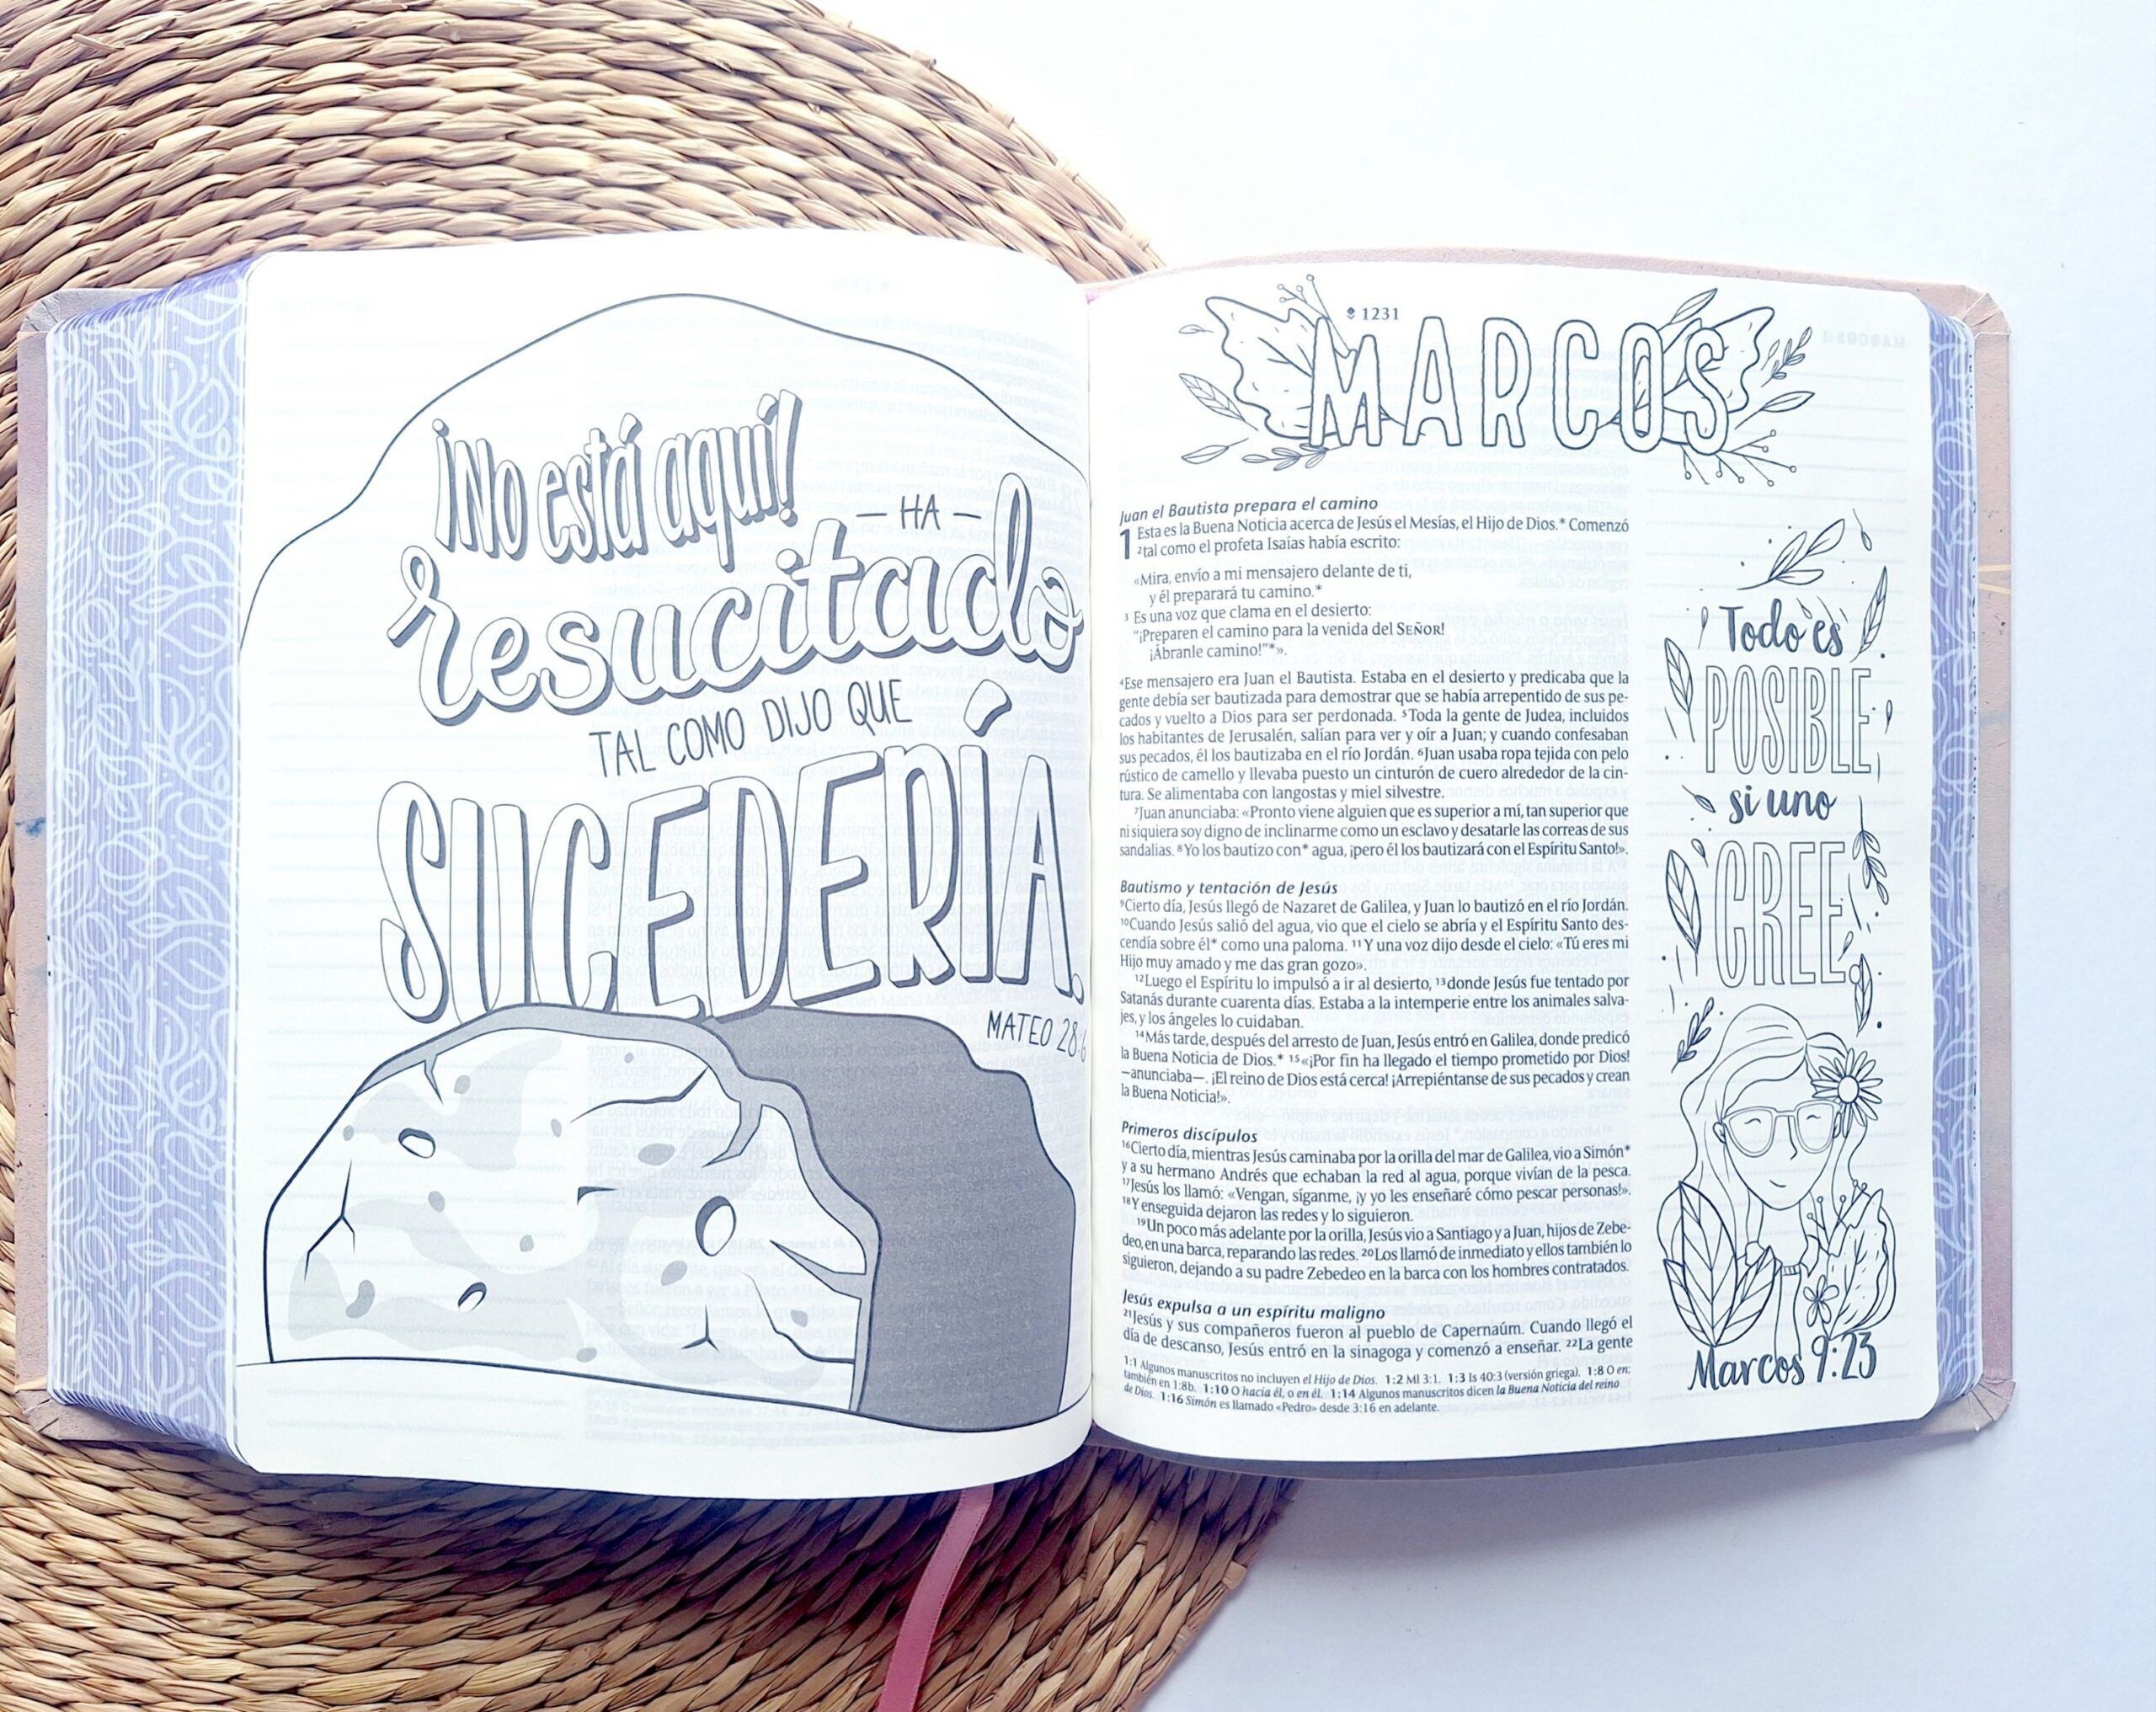 ¡No está aquí!
— HA —
resucitado
TAL COMO DIJO QUE
SUCEDERÍA.
MATEO 28:6
1231
MARCOS
Juan el Bautista prepara el camino
1 Esta es la Buena Noticia acerca de Jesús el Mesías, el Hijo de Dios.* Comenzó
²tal como el profeta Isaías había escrito:
«Mira, envío a mi mensajero delante de ti,
y él preparará tu camino.*
³ Es una voz que clama en el desierto:
“¡Preparen el camino para la venida del SEÑOR!
¡Ábranle camino!”*».
⁴Ese mensajero era Juan el Bautista. Estaba en el desierto y predicaba que la
gente debía ser bautizada para demostrar que se había arrepentido de sus pe-
cados y vuelto a Dios para ser perdonada. ⁵Toda la gente de Judea, incluidos
los habitantes de Jerusalén, salían para ver y oír a Juan; y cuando confesaban
sus pecados, él los bautizaba en el río Jordán. ⁶Juan usaba ropa tejida con pelo
rústico de camello y llevaba puesto un cinturón de cuero alrededor de la cin-
tura. Se alimentaba con langostas y miel silvestre.
⁷Juan anunciaba: «Pronto viene alguien que es superior a mí, tan superior que
ni siquiera soy digno de inclinarme como un esclavo y desatarle las correas de sus
sandalias. ⁸Yo los bautizo con* agua, ¡pero él los bautizará con el Espíritu Santo!».
Bautismo y tentación de Jesús
⁹Cierto día, Jesús llegó de Nazaret de Galilea, y Juan lo bautizó en el río Jordán.
¹⁰Cuando Jesús salió del agua, vio que el cielo se abría y el Espíritu Santo des-
cendía sobre él* como una paloma. ¹¹Y una voz dijo desde el cielo: «Tú eres mi
Hijo muy amado y me das gran gozo».
¹²Luego el Espíritu lo impulsó a ir al desierto, ¹³donde Jesús fue tentado por
Satanás durante cuarenta días. Estaba a la intemperie entre los animales salva-
jes, y los ángeles lo cuidaban.
¹⁴Más tarde, después del arresto de Juan, Jesús entró en Galilea, donde predicó
la Buena Noticia de Dios.* ¹⁵«¡Por fin ha llegado el tiempo prometido por Dios!
—anunciaba—. ¡El reino de Dios está cerca! ¡Arrepiéntanse de sus pecados y crean
la Buena Noticia!».
Primeros discípulos
¹⁶Cierto día, mientras Jesús caminaba por la orilla del mar de Galilea, vio a Simón*
y a su hermano Andrés que echaban la red al agua, porque vivían de la pesca.
¹⁷Jesús los llamó: «Vengan, síganme, ¡y yo les enseñaré cómo pescar personas!».
¹⁸Y enseguida dejaron las redes y lo siguieron.
¹⁹Un poco más adelante por la orilla, Jesús vio a Santiago y a Juan, hijos de Zebe-
deo, en una barca, reparando las redes. ²⁰Los llamó de inmediato y ellos también lo
siguieron, dejando a su padre Zebedeo en la barca con los hombres contratados.
Jesús expulsa a un espíritu maligno
²¹Jesús y sus compañeros fueron al pueblo de Capernaúm. Cuando llegó el
día de descanso, Jesús entró en la sinagoga y comenzó a enseñar. ²²La gente
1:1 Algunos manuscritos no incluyen el Hijo de Dios. 1:2 Ml 3:1. 1:3 Is 40:3 (versión griega). 1:8 O en;
también en 1:8b. 1:10 O hacia él, o en él. 1:14 Algunos manuscritos dicen la Buena Noticia del reino
de Dios. 1:16 Simón es llamado «Pedro» desde 3:16 en adelante.
Todo es
POSIBLE
si uno
CREE.
Marcos 9:23